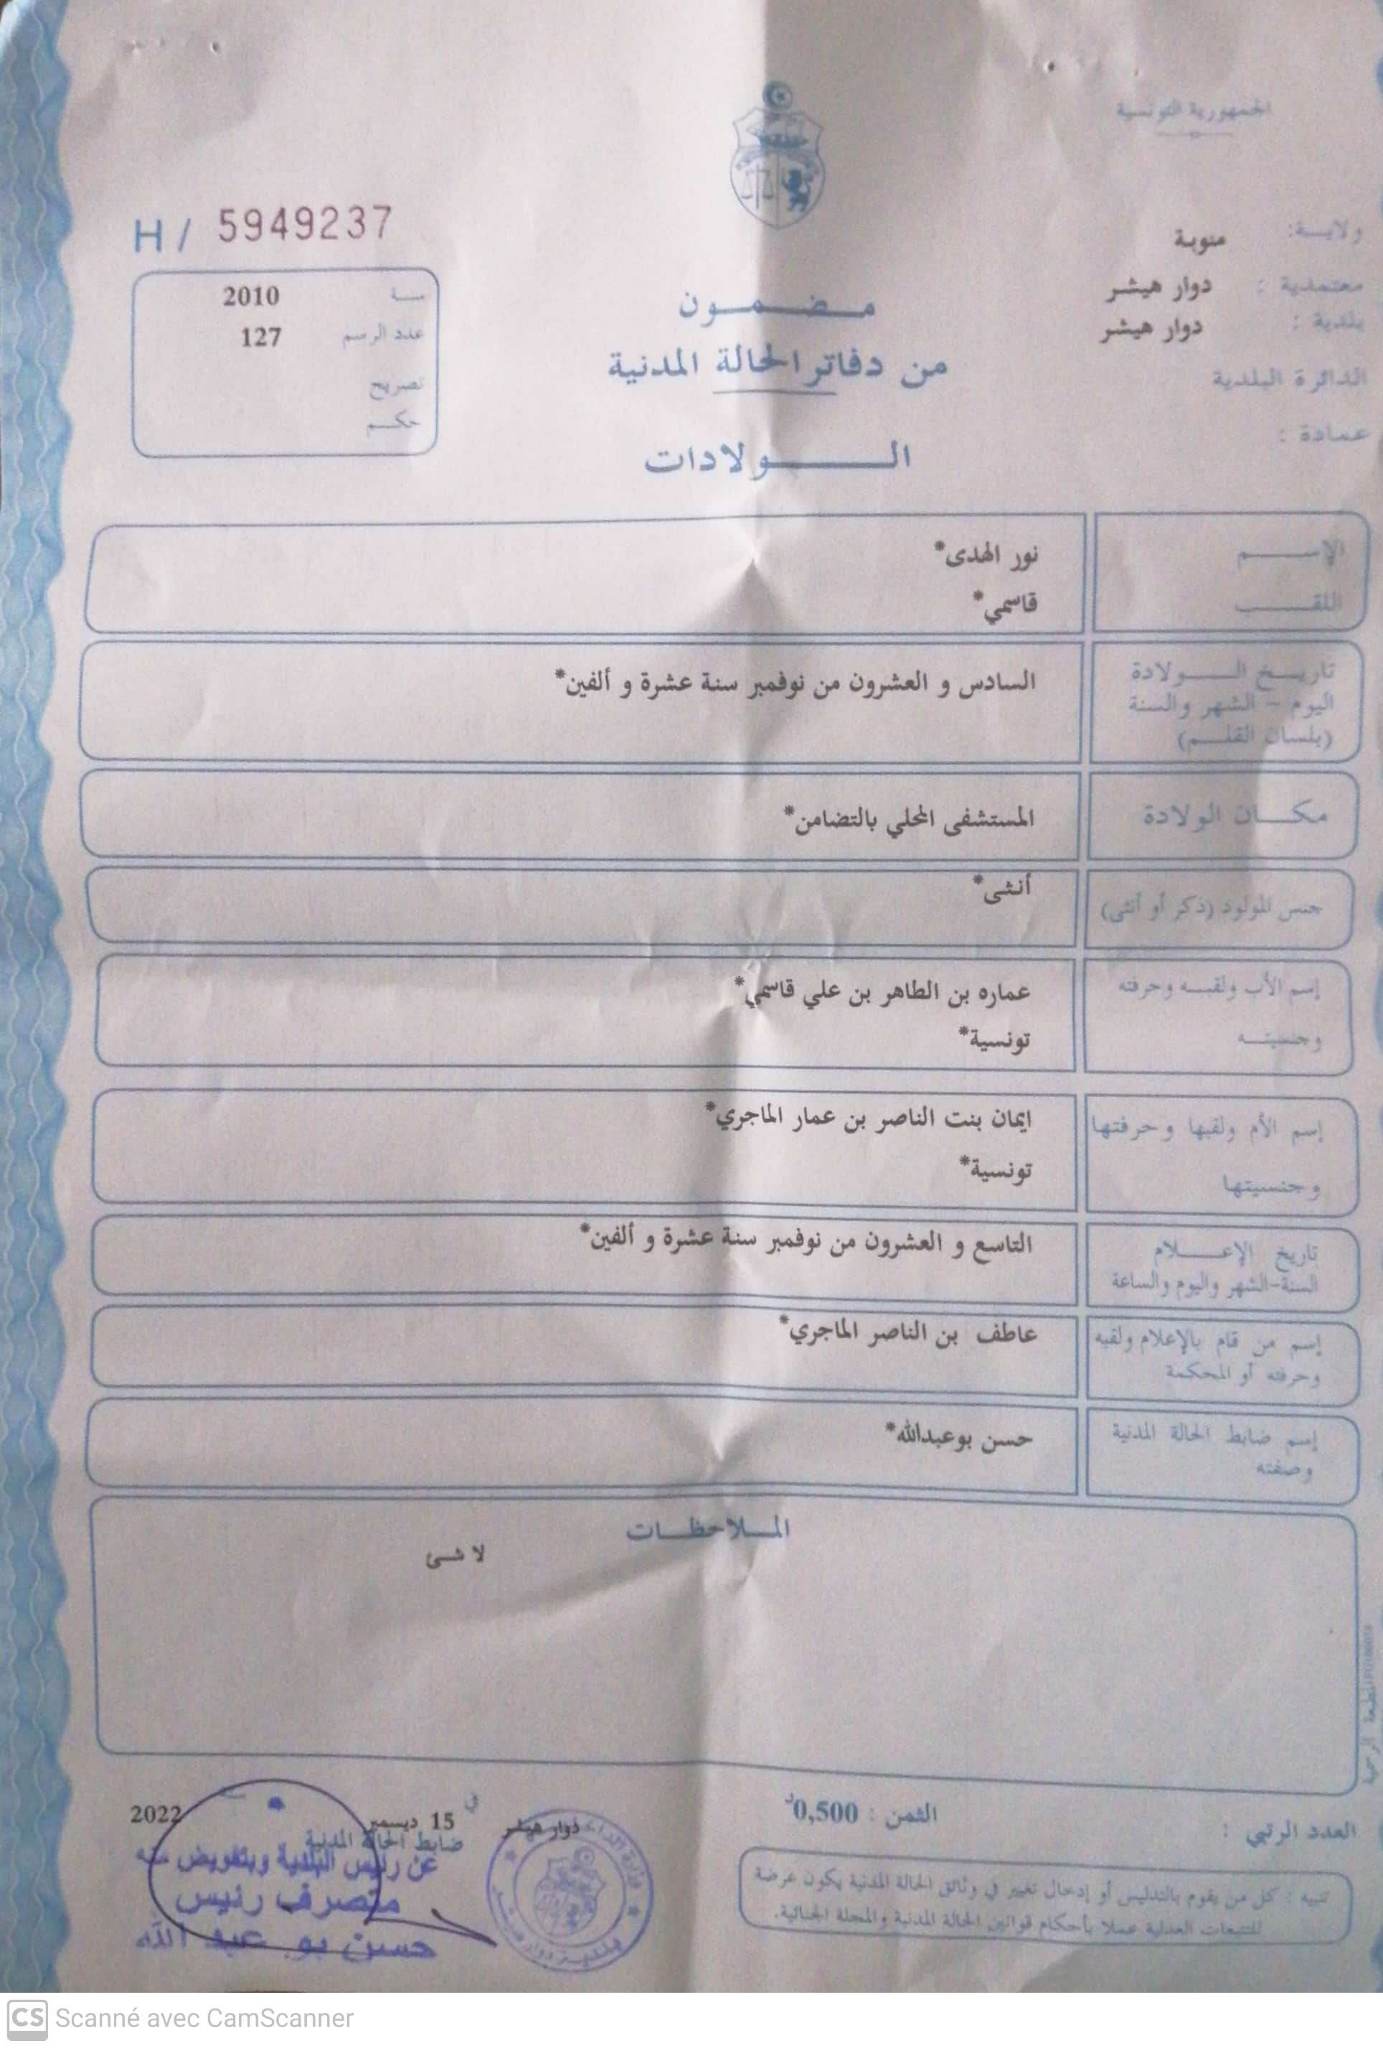 الجمهورية التونسية
H / 5949237
ولاية: منوبة
معتمدية : دوار هيشر
بلدية : دوار هيشر
الدائرة البلدية
عمادة :
سنة 2010
عدد الرسم 127
تصريح
حكم
مضمون
من دفاتر الحالة المدنية
الولادات
الإسم نور الهدى*
اللقب قاسمي*
تاريخ الولادة
اليوم - الشهر والسنة
(بلسان القلم)
السادس و العشرون من نوفمبر سنة عشرة و ألفين*
مكان الولادة المستشفى المحلي بالتضامن*
جنس المولود (ذكر أو أنثى) أنثى*
إسم الأب ولقبه وحرفته عماره بن الطاهر بن علي قاسمي*
وجنسيته تونسية*
إسم الأم ولقبها وحرفتها ايمان بنت الناصر بن عمار الماجري*
وجنسيتها تونسية*
تاريخ الإعلام التاسع و العشرون من نوفمبر سنة عشرة و ألفين*
السنة-الشهر واليوم والساعة
إسم من قام بالإعلام ولقبه عاطف بن الناصر الماجري*
وحرفته أو المحكمة
إسم ضابط الحالة المدنية حسن بوعبدالله*
وصفته
الملاحظات
لا شئ
العدد الرتبي :
الثمن : 0,500د
تنبيه : كل من يقوم بالتدليس أو إدخال تغيير في وثائق الحالة المدنية يكون عرضة
للتتبعات العدلية عملا بأحكام قوانين الحالة المدنية والمجلة الجنائية.
دوار هيشر في 15 ديسمبر 2022
ضابط الحالة المدنية
عن رئيس البلدية وبتفويض منه
متصرف رئيس
حسن بو عبد الله
CS Scanné avec CamScanner